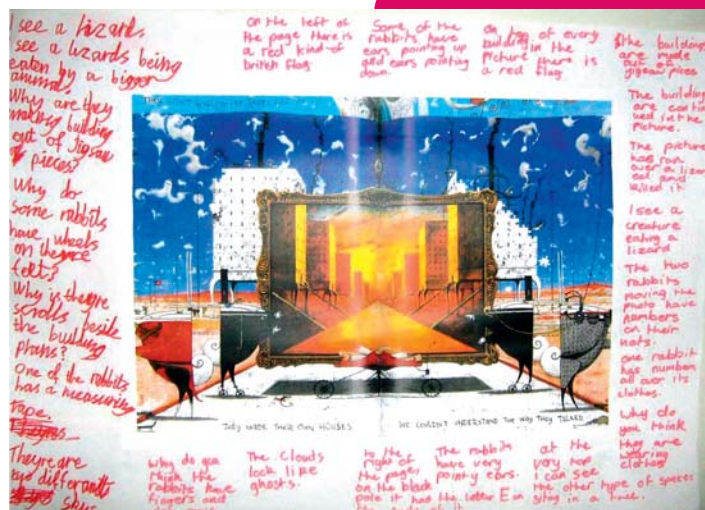 I see a lizard.
I see a lizards being
eaten by a bigger
animal.
Why are they
making building
out of Jigsaw
pieces?
Why do
some rabbits
have wheels
on
feets
Why is theyre
scrolls beside
the building
plans?
One of the rabbits
has a measuring
tape.
Theyre are
two differants
skys
on the left of
the page there is
a red kind of
british flag
Some of the
rabbits have
ears pointing up
and ears pointing
down.
on top of every
building in the
picture there is
a red flag
the buildings
are made
out of
jigsaw pices
The building
are contin
ued in the
picture.
The picture
has ran
over a lizar
ed and
killed it
I see a
creature
eating a
lizard
The two
rabbits
moving the
photo have
numbers
on their
hats.
one rabbit
has number
all over its
clothes.
Why do
you think
they are
wearing
clothes
They
THEY MADE THEIR OWN HOUSES
WE COULDN'T UNDERSTAND THE WAY THEY TALKED
Why do you
think the
rabbits have
fingers and
The clouds
look like
ghosts.
to the
right of
the page,
on the black
pole it has the letter E in
The rabbits
have very
pointy ears.
at the
very top
I can see
the other type of species
siting in a tree.